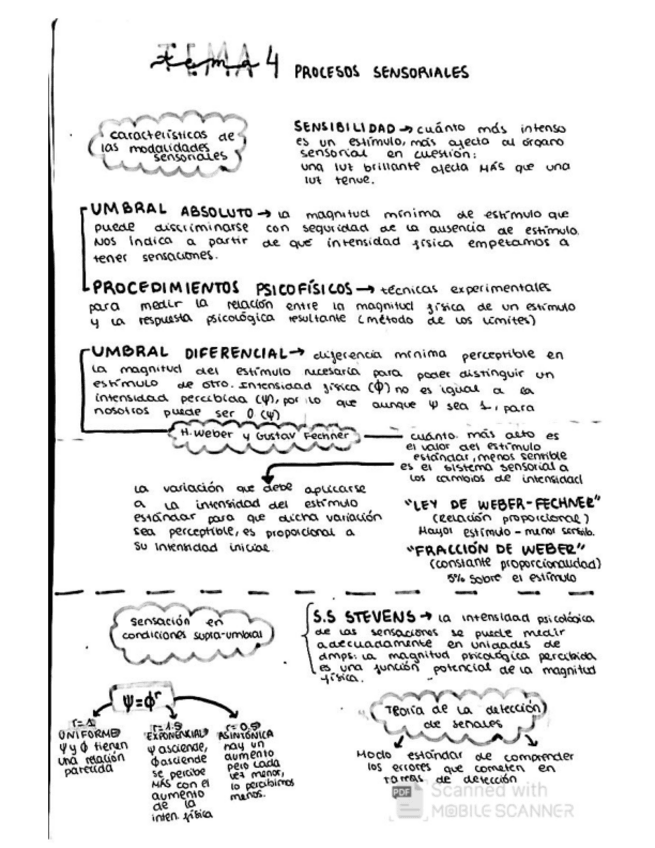 TEMA 4 PROCESOS SENSORIALES
características de
las modalidades
sensoriales
SENSIBILIDAD → cuánto más intenso
es un estímulo, más afecta al órgano
sensorial en cuestión:
una luz brillante afecta MÁS que una
luz tenue.
UMBRAL ABSOLUTO → la magnitud mínima de estímulo que
puede discriminarse con seguridad de la ausencia de estímulo.
Nos indica a partir de qué intensidad física empezamos a
tener sensaciones.
PROCEDIMIENTOS PSICOFÍSICOS → técnicas experimentales
para medir la relación entre la magnitud física de un estímulo
y la respuesta psicológica resultante (método de los límites)
UMBRAL DIFERENCIAL → diferencia mínima perceptible en
la magnitud del estímulo necesaria para poder distinguir un
estímulo de otro. Intensidad física (ϕ) no es igual a la
intensidad percibida (ψ), por lo que aunque ψ sea 1, para
nosotros puede ser 0 (ψ)
H. Weber y Gustav Fechner
cuánto más alto es
el valor del estímulo
estándar, menos sentible
es el sistema sensorial a
los cambios de intensidad
la variación que debe aplicarse
a la intensidad del estímulo
estándar para que dicha variación
sea perceptible, es proporcional a
su intensidad inicial
"LEY DE WEBER-FECHNER"
(relación proporcional)
Mayor estímulo - menor sensib.
"FRACCIÓN DE WEBER"
(constante proporcionalidad)
5% sobre el estímulo
sensación en
condiciones supra-umbral
S.S STEVENS → la intensidad psicológica
de las sensaciones se puede medir
adecuadamente en unidades de
dmps: la magnitud psicológica percibida
es una función potencial de la magnitud
física.
ψ=ϕʳ
r=1
UNIFORME
ψ y ϕ tienen
una relación
parecida
r=1.5
EXPONENCIAL
ψ asciende,
ϕ asciende
se percibe
MÁS con el
aumento
de la
inten. física
r=0.5
ASINTÓNICA
hay un
aumento
pero cada
vez menor,
lo percibimos
menos.
Teoría de la detección
de señales
Modo estándar de comprender
los errores que cometen en
tareas de detección
PDF Scanned with
MOBILE SCANNER